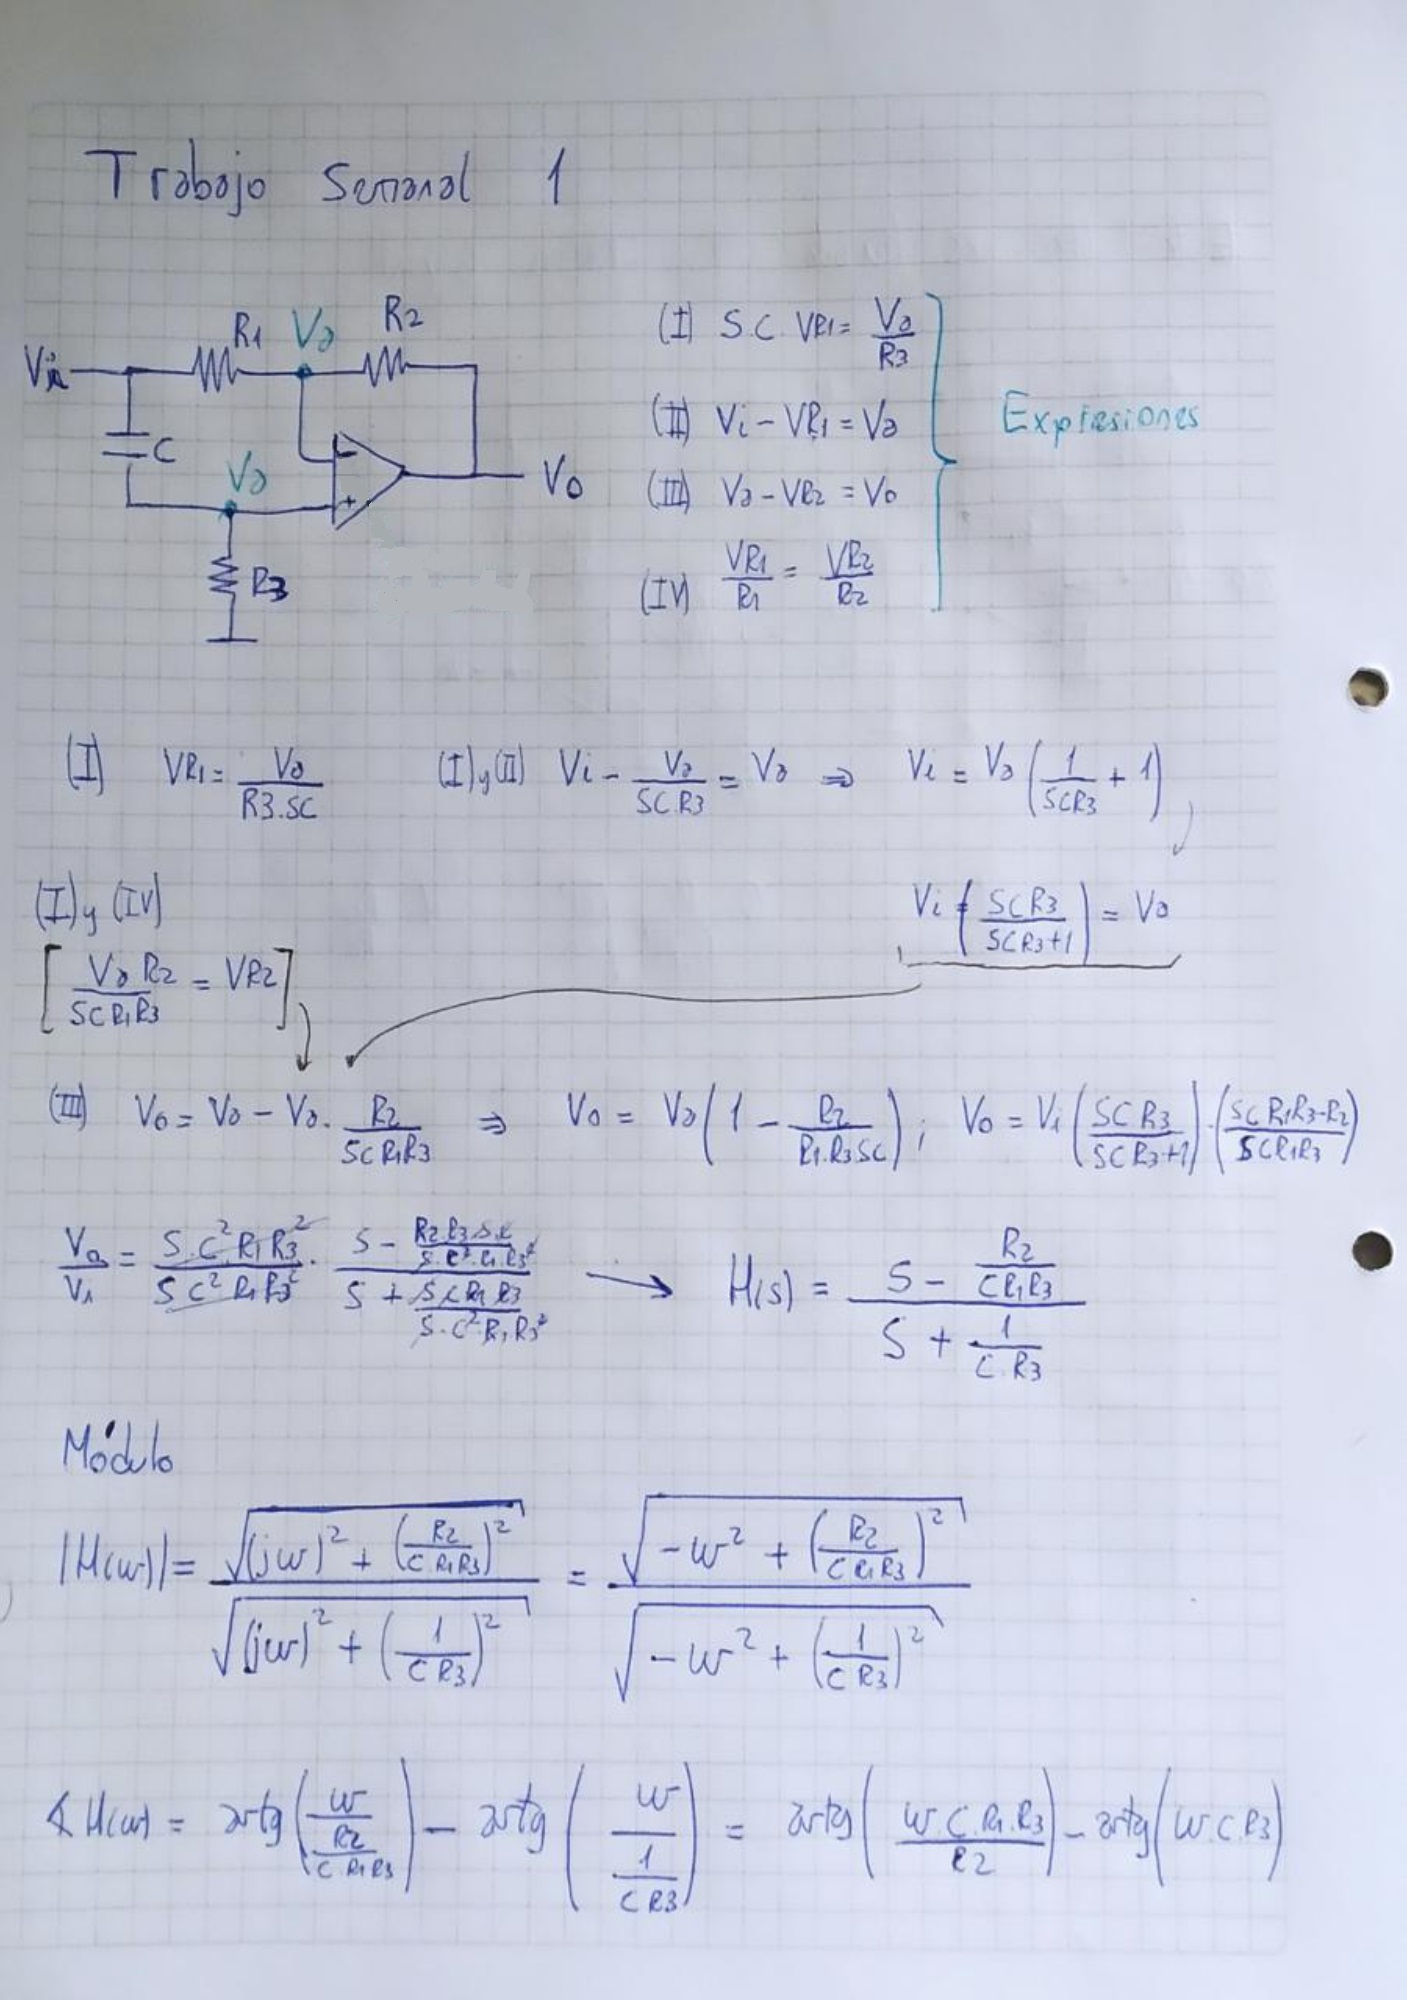 Trabajo Semanal 1
R1 Va R2
Vi
C
Va
- + Vo
R3
(I) S.C. VR1 = Va/R3
(II) Vi - VR1 = Va
(III) Va - VR2 = Vo
(IV) VR1/R1 = VR2/R2
Expresiones
(I) VR1 = Va/(R3.SC) (I) y (II) Vi - Va/(SC.R3) = Va ⇒ Vi = Va (1/(SCR3) + 1)
Vi (SCR3/(SCR3+1)) = Va
(I) y (IV)
[Va R2/(SCR1R3) = VR2]
(III) Vo = Va - Va . R2/(SCR1R3) ⇒ Vo = Va (1 - R2/(R1.R3.SC)) ; Vo = Vi (SCR3/(SCR3+1)) . ((SCR1R3-R2)/(SCR1R3))
Vo/Vi = (S.C²R1R3²)/(SC²R1R3²) . (S - (R2.R3.S.C)/(S.C².R1.R3²))/(S + (SCR1R3)/(S.C².R1R3²)) → H(s) = (S - R2/(CR1R3))/(S + 1/(C.R3))
Módulo
|H(w)| = √((jw)² + (R2/(CR1R3))²)/√((jw)² + (1/(CR3))²) = √(-w² + (R2/(CR1R3))²)/√(-w² + (1/(CR3))²)
∢H(w) = artg(w/(R2/(CR1R3))) - artg(w/(1/(CR3))) = artg(w.C.R1.R3/R2) - artg(w.C.R3)